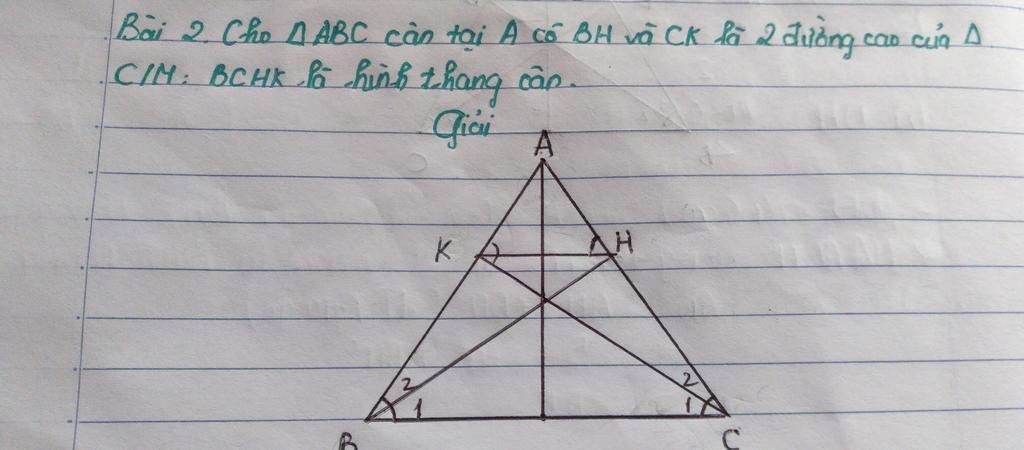 Bài 2. Cho Δ ABC cân tại A có BH và CK là 2 đường cao của Δ
C/M: BCHK là hình thang cân.
Giải
A
K H
2 2
1 1
B C